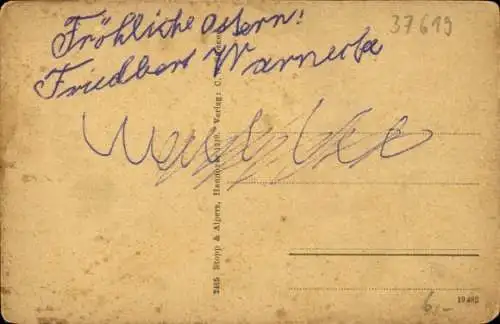 Fröhliche Ostern!
Friedbert Warnecke
37619
2465 Stopp & Alpers, Hannover
Verlag: C.
19482
6,-